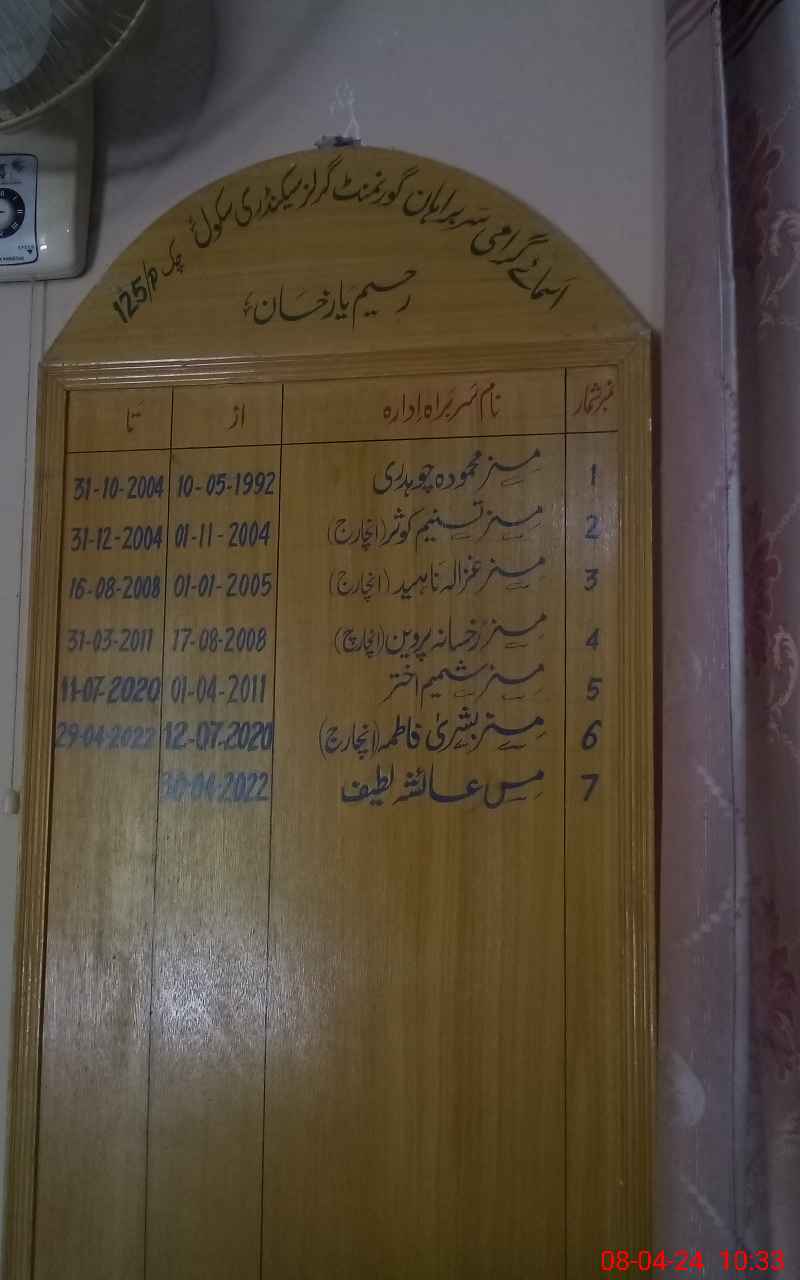 اسمائے گرامی سربراہان گورنمنٹ گرلز سیکنڈری سکول چک 125/P
رحیم یار خان
نمبر شمار نام سربراہ ادارہ از تا
1 مسز محمودہ چوہدری 10-05-1992 31-10-2004
2 مسز تسنیم کوثر (انچارج) 01-11-2004 31-12-2004
3 مسز غزالہ ناہید (انچارج) 01-01-2005 16-08-2008
4 مسز رخسانہ پروین (انچارج) 17-08-2008 31-03-2011
5 مسز شمیم اختر 01-04-2011 11-07-2020
6 مسز بشریٰ فاطمہ (انچارج) 12-07-2020 29-04-2022
7 مس عائشہ لطیف 30-04-2022
08-04-24 10:33